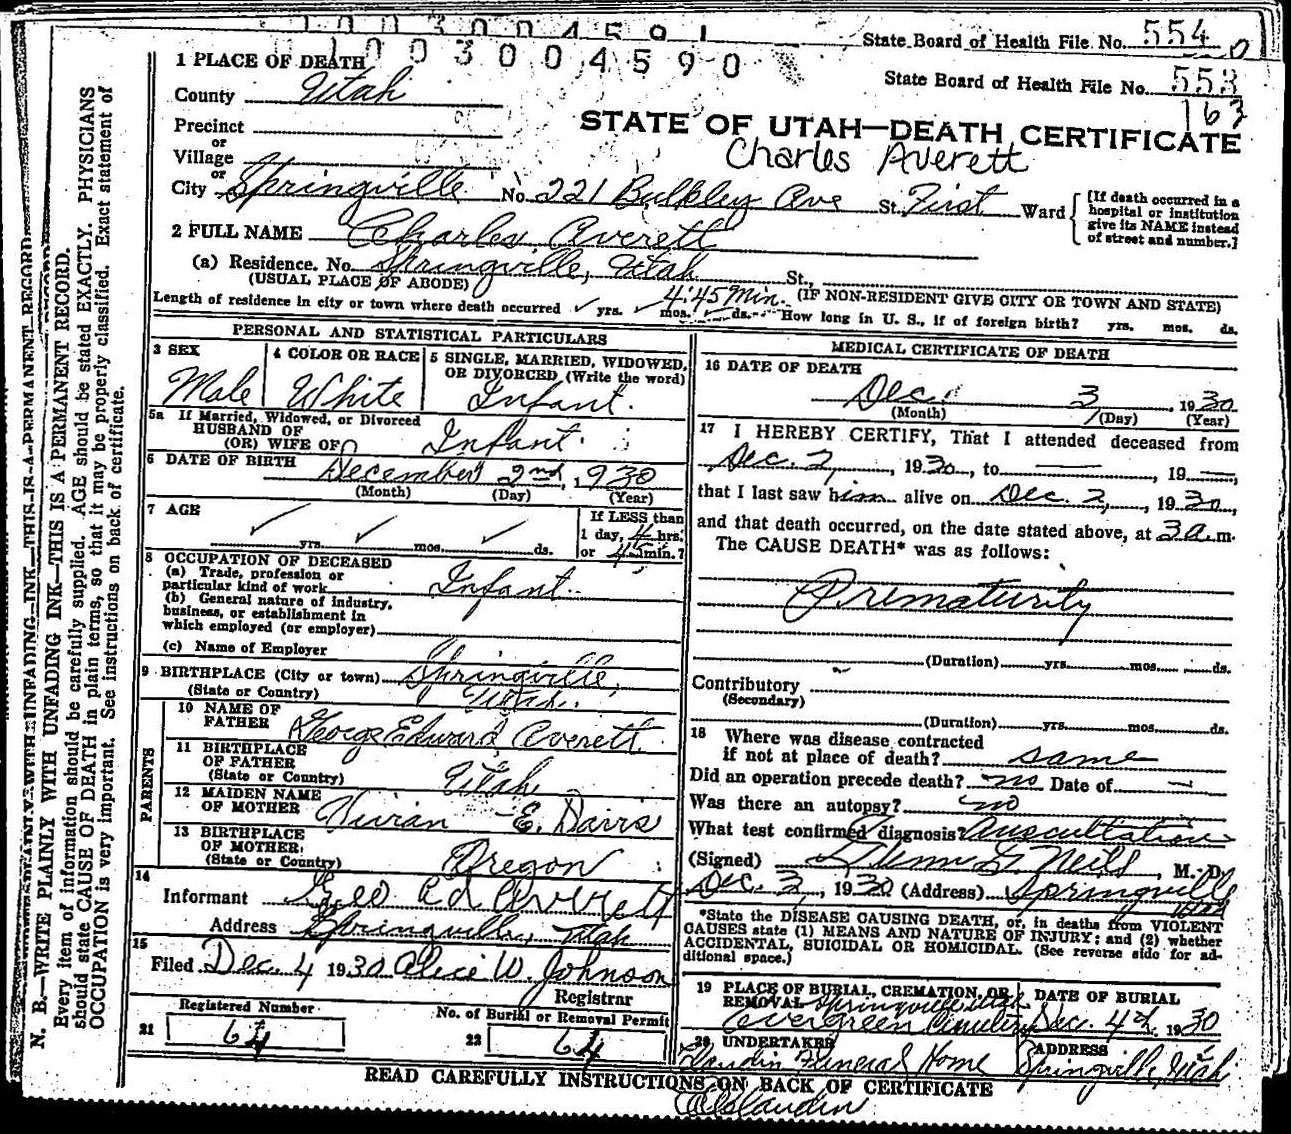 1003004591
State Board of Health File No. 554
1003004590
State Board of Health File No. 553
163
1 PLACE OF DEATH
County Utah
STATE OF UTAH—DEATH CERTIFICATE
Precinct
or
Charles Averett
Village
or
City Springville No. 221 Bulkley Ave St. First Ward
[If death occurred in a
hospital or institution
give its NAME instead
of street and number.]
2 FULL NAME Charles Averett
(a) Residence. No. Springville, Utah St.,
(USUAL PLACE OF ABODE)
(IF NON-RESIDENT GIVE CITY OR TOWN AND STATE)
Length of residence in city or town where death occurred yrs. mos. ds. 4:45 Min. How long in U. S., if of foreign birth? yrs. mos. ds.
PERSONAL AND STATISTICAL PARTICULARS
3 SEX
Male
4 COLOR OR RACE
White
5 SINGLE, MARRIED, WIDOWED,
OR DIVORCED (Write the word)
Infant.
5a If Married, Widowed, or Divorced
HUSBAND OF
(OR) WIFE OF Infant.
6 DATE OF BIRTH December 2nd, 1930
(Month) (Day) (Year)
7 AGE
yrs. mos. ds.
If LESS than
1 day, 4 hrs.
or 45 min.?
8 OCCUPATION OF DECEASED
(a) Trade, profession or
particular kind of work Infant.
(b) General nature of industry,
business, or establishment in
which employed (or employer)
(c) Name of Employer
9 BIRTHPLACE (City or town) Springville,
(State or Country) Utah.
PARENTS
10 NAME OF
FATHER George Edward Averett
11 BIRTHPLACE
OF FATHER
(State or Country) Utah
12 MAIDEN NAME
OF MOTHER Vivian E. Davis
13 BIRTHPLACE
OF MOTHER
(State or Country) Oregon
14
Informant Geo Ed Averett
Address Springville, Utah
15
Filed Dec. 4 1930 Alice W. Johnson
Registrar
Registered Number
21 64
No. of Burial or Removal Permit
22 64
MEDICAL CERTIFICATE OF DEATH
16 DATE OF DEATH
Dec. 3, 1930
(Month) (Day) (Year)
17 I HEREBY CERTIFY, That I attended deceased from
Dec. 2, 1930, to — 19 —,
that I last saw him alive on Dec. 2, 1930,
and that death occurred, on the date stated above, at 3 a. m.
The CAUSE DEATH* was as follows:
Prematurity
(Duration) yrs. mos. ds.
Contributory
(Secondary)
(Duration) yrs. mos. ds.
18 Where was disease contracted
if not at place of death? same
Did an operation precede death? no Date of —
Was there an autopsy? no
What test confirmed diagnosis? Auscultation
(Signed) M. D.
Dec. 3, 1930 (Address) Springville
Utah
*State the DISEASE CAUSING DEATH, or, in deaths from VIOLENT
CAUSES state (1) MEANS AND NATURE OF INJURY; and (2) whether
ACCIDENTAL, SUICIDAL OR HOMICIDAL. (See reverse side for ad-
ditional space.)
19 PLACE OF BURIAL, CREMATION, OR
REMOVAL Springville Utah
Evergreen Cemetery
DATE OF BURIAL
Dec. 4th, 1930
20 UNDERTAKER
Funeral Home
ADDRESS
Springville, Utah
READ CAREFULLY INSTRUCTIONS ON BACK OF CERTIFICATE
N. B.—WRITE PLAINLY WITH UNFADING INK—THIS IS A PERMANENT RECORD.
Every item of information should be carefully supplied. AGE should be stated EXACTLY. PHYSICIANS
should state CAUSE OF DEATH in plain terms, so that it may be properly classified. Exact statement of
OCCUPATION is very important. See instructions on back of certificate.